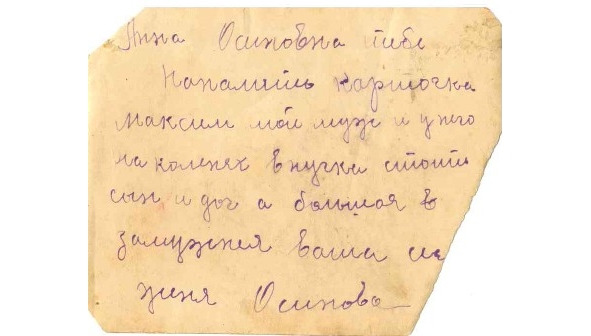 Анна Осиповна тебе
На память карточка
Максим мой муж и у него
на коленех внучка стоит
сын и доч а большая в
замужня ваша се
женя Осипова